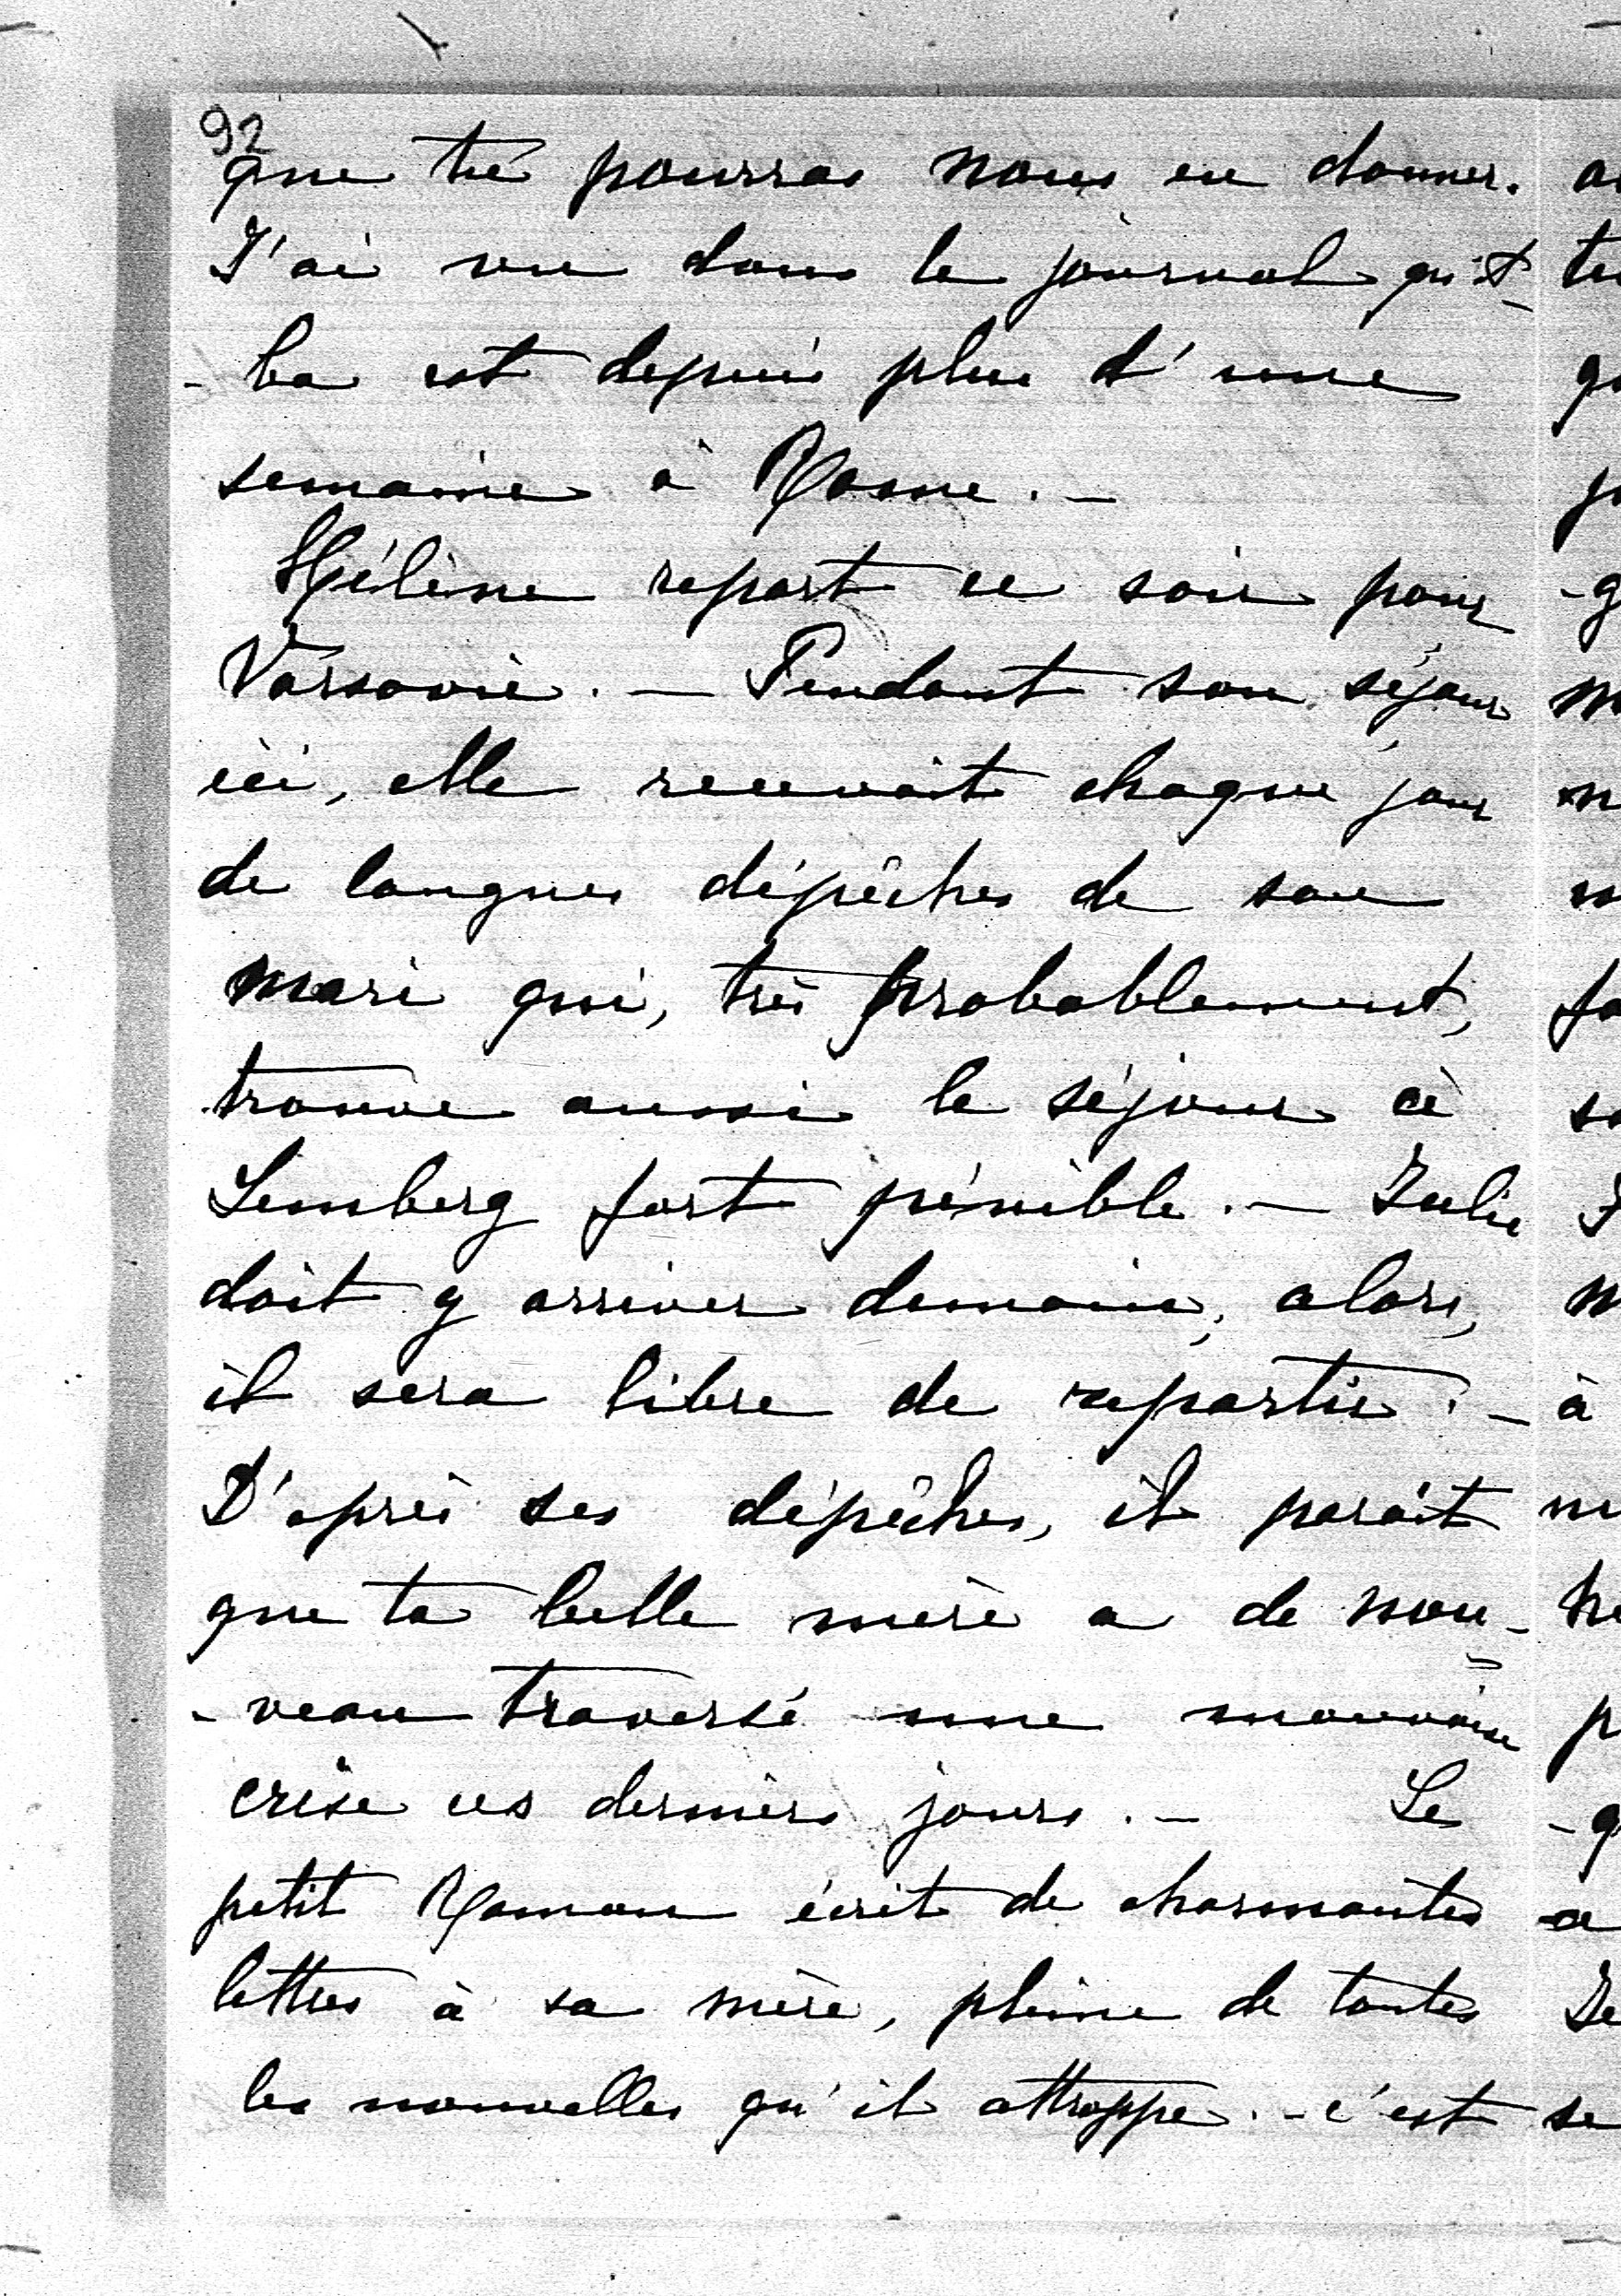 92
que tu pourras nous en donner.
J'ai vu dans le journal qu'A-
-ba est depuis plus d'une
semaine à Rome. –
Hélène repart ce soir pour
Varsovie. – Pendant son séjour
ici, elle recevait chaque jour
de longues dépêches de son
mari qui, très probablement,
trouve aussi le séjour à
Lemberg fort pénible. – Julie
doit y arriver demain, alors,
il sera libre de repartir. –
D'après ses dépêches, il paraît
que ta belle mère a de nou-
-veau traversé une mauvaise
crise ces derniers jours. – Le
petit Roman écrit de charmantes
lettres à sa mère, pleine de toutes
les nouvelles qu'il attrappe. – c'est